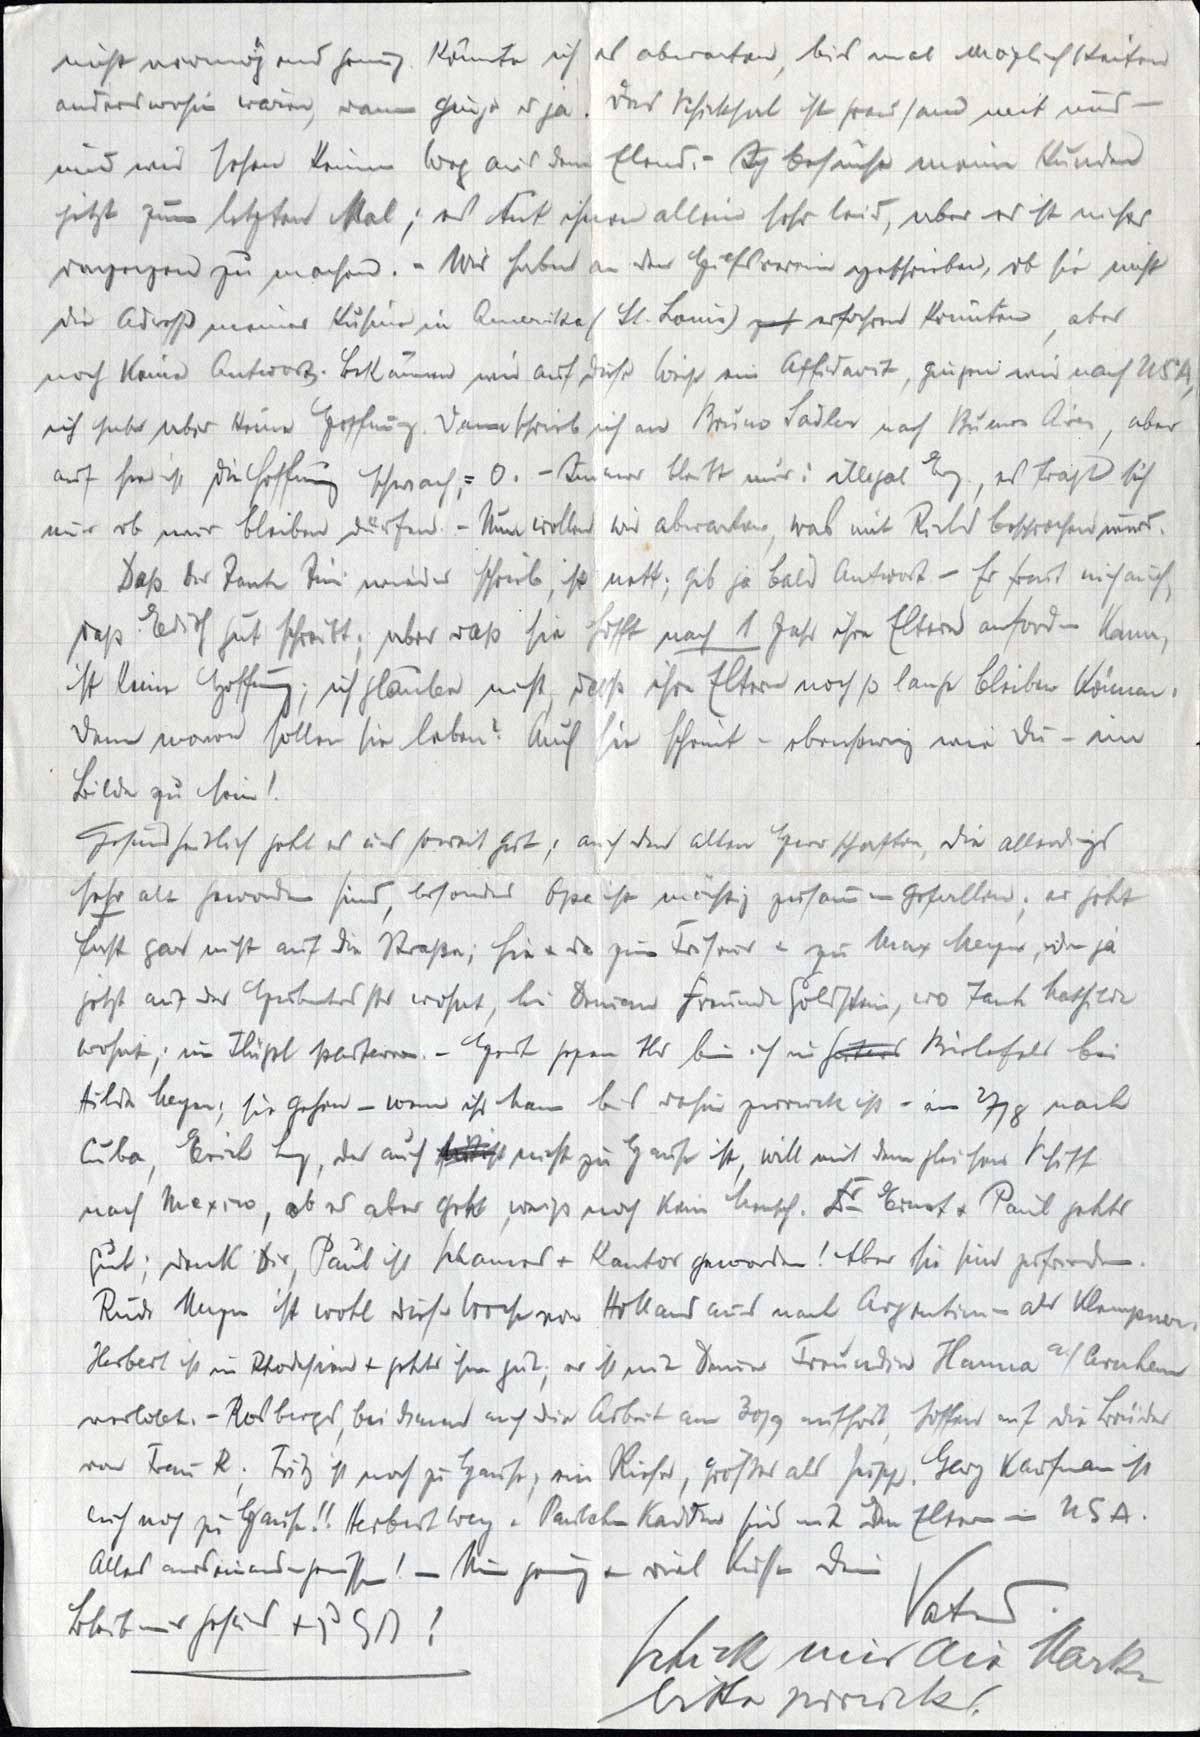 nicht vermögend genug. Könnte ich es abwarten, bis mal Möglichkeiten
anderswohin wären, dann ginge es ja. Das Schicksal ist grausam mit uns –
und wir sehen keinen Weg aus dem Elend. – Ich besuche meine Kunden
jetzt zum letzten Mal; es tut ihnen allen sehr leid, aber es ist nichts
dagegen zu machen. – Wir haben an den Hilfsverein geschrieben, ob sie nicht
die Adresse meiner Kusine in Amerika (St. Louis) erfahren könnten, aber
noch keine Antwort. Bekämen wir auf diese Weise ein Affidavit, gingen wir nach USA,
ich habe aber keine Hoffnung. Dann schrieb ich an Bruno Sadler nach Buenos Aires, aber
auf hier ist die Hoffnung schwach, = 0. – Immer bleibt nur: illegal, es fragt sich
nur ob wir bleiben dürfen. – Nun wollen wir abwarten, was mit Richard besprochen wird.
Daß der Tante Tini wieder schrieb, ist nett; gib ja bald Antwort – Es freut mich auch,
daß Edith gut schreibt; aber daß sie hofft nach 1 Jahr ihre Eltern anfordern kann,
ist keine Hoffnung; ich glaube nicht, daß ihre Eltern noch so lange bleiben können.
Denn wovon sollen sie leben? Auch sie scheint – ebensowenig wie Du – im
Bilde zu sein!
Gesundheitlich geht es uns soweit gut; auch den alten Herrschaften, die allerdings
sehr alt geworden sind, besonders Opa ist mächtig zusammengefallen; er geht
fast gar nicht auf die Straße; hie + da zum Friseur + zu Max Meyer, der ja
jetzt auf der wohnt, bei Deinem Freunde Goldstein, wo Tante Mathilde
wohnt; im Flügel parterre. – Heut gegen Uhr bin ich in Bielefeld bei
Hilde Meyer; sie gehen – wenn ihr Mann bis dahin zurück ist – am 27/8 nach
Cuba, Erich, der auch nicht zu Hause ist, will mit dem gleichen Schiff
nach Mexico, ob es aber geht, weiß noch kein Mensch. Ernst + Paul gehts
gut; denk Dir, Paul ist Schames + Kantor geworden! Aber sie sind zufrieden.
Rudi Meyer ist wohl diese Woche von Holland aus nach Argentinien als Klempner.
Herbert ist in Rhodesien + gehts ihm gut; er ist mit Deiner Freundin Hanna a/ Arnhem
verlobt. – Rosbergs, bei denen auch die Arbeit am 30/9 aufhört, hoffen auf die Brüder
von Frau R. Fritz ist noch zu Hause, ein Riese, größer als Jupp. Georg Kaufman ist
auch noch zu Hause!! Herbert + Paulchen sind mit den Eltern in USA.
Alles auseinandergerissen! – Nun genug + viel Küsse Dein
Vater.
Bleib mir gesund + !
Schick mir die Marke
bitte zurück.